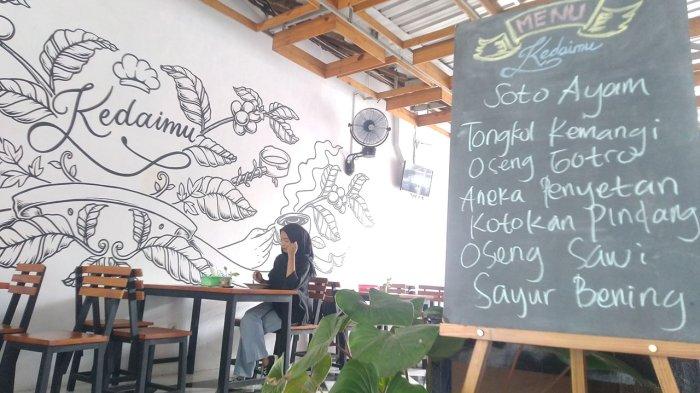 Kedaimu
MENU
Kedaimu
Soto Ayam
Tongkol Kemangi
Oseng Gotro
Aneka Penyetan
Kotokan Pindang
Oseng Sawi
Sayur Bening